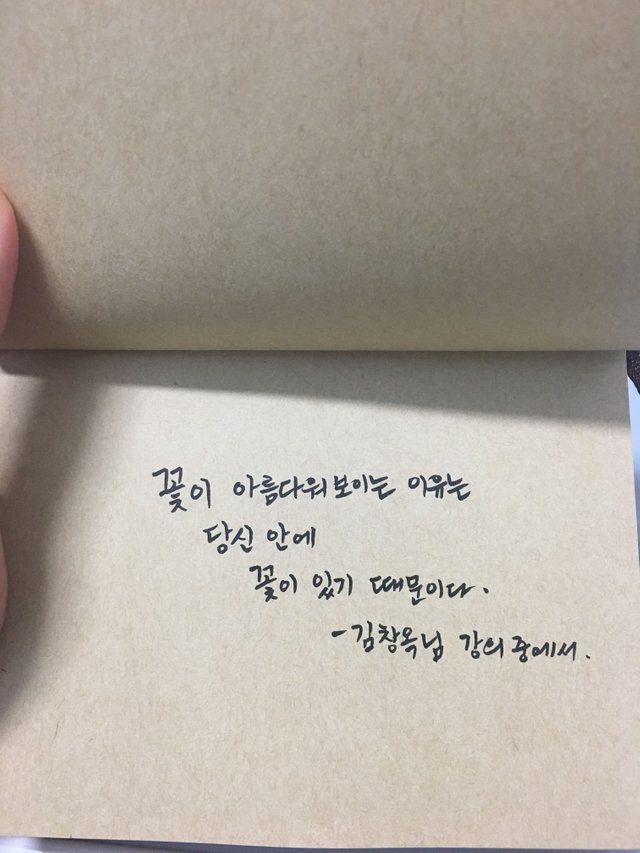 꽃이 아름다워보이는 이유는
당신 안에
꽃이 있기 때문이다.
-김창옥님 강의 중에서.